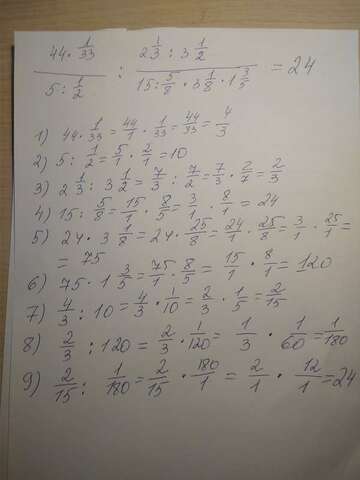 44 · 1/33 / 5 : 1/2 : 2 1/3 : 3 1/2 / 15 : 5/8 · 3 1/8 · 1 3/5 = 24
1) 44 · 1/33 = 44/1 · 1/33 = 44/33 = 4/3
2) 5 : 1/2 = 5/1 · 2/1 = 10
3) 2 1/3 : 3 1/2 = 7/3 : 7/2 = 7/3 · 2/7 = 2/3
4) 15 : 5/8 = 15/1 · 8/5 = 3/1 · 8/1 = 24
5) 24 · 3 1/8 = 24 · 25/8 = 24/1 · 25/8 = 3/1 · 25/1 =
= 75
6) 75 · 1 3/5 = 75/1 · 8/5 = 15/1 · 8/1 = 120
7) 4/3 : 10 = 4/3 · 1/10 = 2/3 · 1/5 = 2/15
8) 2/3 : 120 = 2/3 · 1/120 = 1/3 · 1/60 = 1/180
9) 2/15 : 1/180 = 2/15 · 180/1 = 2/1 · 12/1 = 24